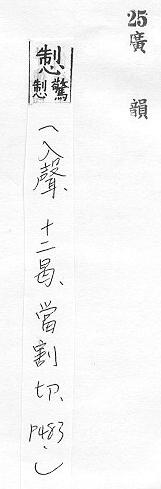 25廣韻
驚
(入聲、十二曷、當割切、P483.)